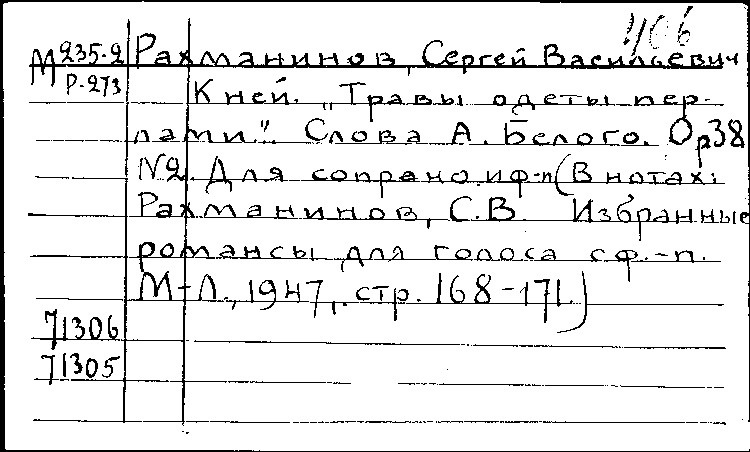 406
М 235-2 Рахманинов, Сергей Васильевич
Р-273 К ней. „Травы одеты пер-
лами." Слова А. Белого. Op38
N2. Для сопрано и ф-п (В нотах:
Рахманинов, С.В. Избранные
романсы для голоса с ф.-п.
М-Л., 1947, стр. 168-171.)
71306
71305